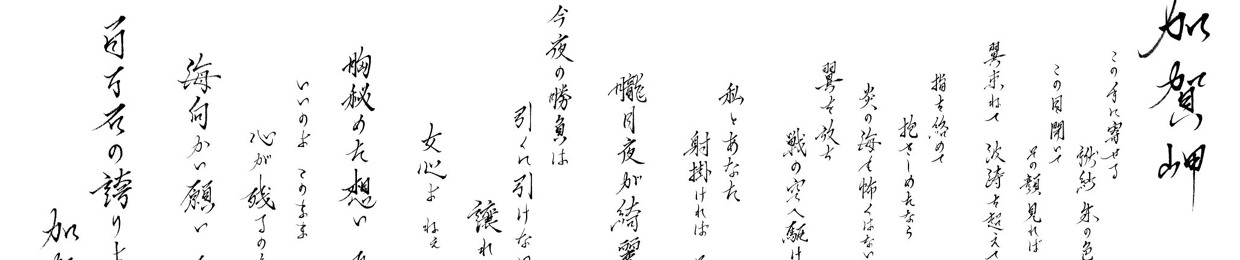 加賀岬
この手に寄せる
袱紗 朱の色
この目開いて
その顔見れば
翼束ねて 波濤を超えて
指を絡めて
抱きしめたなら
炎の海も怖くはない
戦の空へ駆け
翼を放ち
私とあなた
射掛ければ
朧月夜が綺麗
今夜の勝負は
引くに引けない
譲れ
女心よ ねえ
胸秘めた想い
いいのよ このまま
心が残るの
海向かい願い
百万石の誇り
加